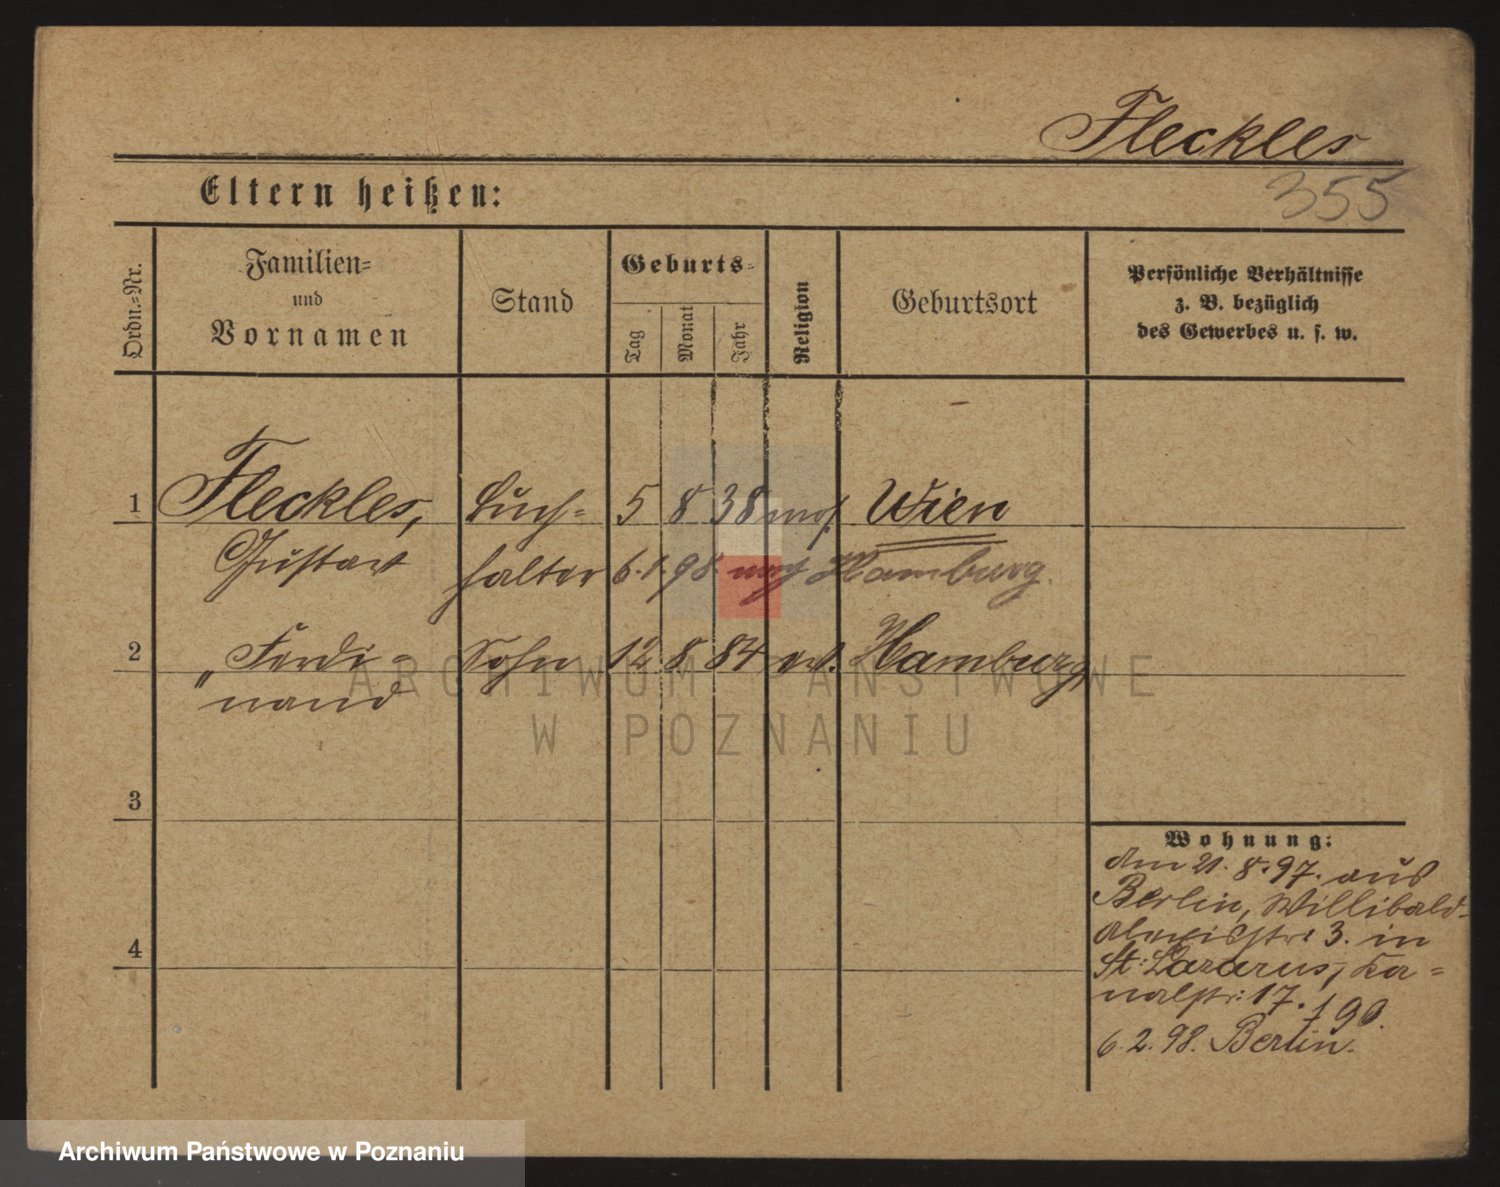 Fleckles
355
Eltern heißen:
Ordn.=Nr.
Familien=
und
Vornamen
Stand
Geburts=
Tag
Monat
Jahr
Religion
Geburtsort
Persönliche Verhältnisse
z. B. bezüglich
des Gewerbes u. s. w.
1 Fleckles, Buch= 5 8 38 mos. Wien
Gustav halter 6.1.98. nach Hamburg.
2 " Ferdi= Sohn 12 8 84 ev. Hamburg
nand
ARCHIWUM PAŃSTWOWE
W POZNANIU
3
4
Wohnung:
Am 21.8.97. aus
Berlin, Willibald=
Alexisstr. 3. in
St: Lazarus, Ka=
nalstr: 17.
6.2.98. Berlin.
Archiwum Państwowe w Poznaniu